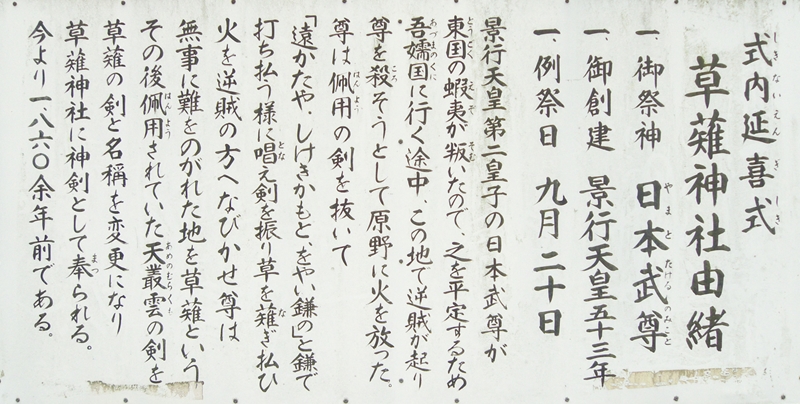 式内延喜式
草薙神社由緒
一、御祭神 日本武尊
一、御創建 景行天皇五十三年
一、例祭日 九月二十日
景行天皇第二皇子の日本武尊が
東国の蝦夷が叛いたので、之を平定するため
吾嬬国に行く途中、この地で逆賊が起り
尊を殺そうとして原野に火を放った。
尊は佩用の剣を抜いて
「遠かたや、しけきかもと、をやい鎌の」と鎌で
打ち払う様に唱え剣を振り草を薙ぎ払ひ
火を逆賊の方へなびかせ尊は
無事に難をのがれた地を草薙という
その後佩用されていた天叢雲の剣を
草薙の剣と名稱を変更になり
草薙神社に神剣として奉られる。
今より一、八六〇余年前である。